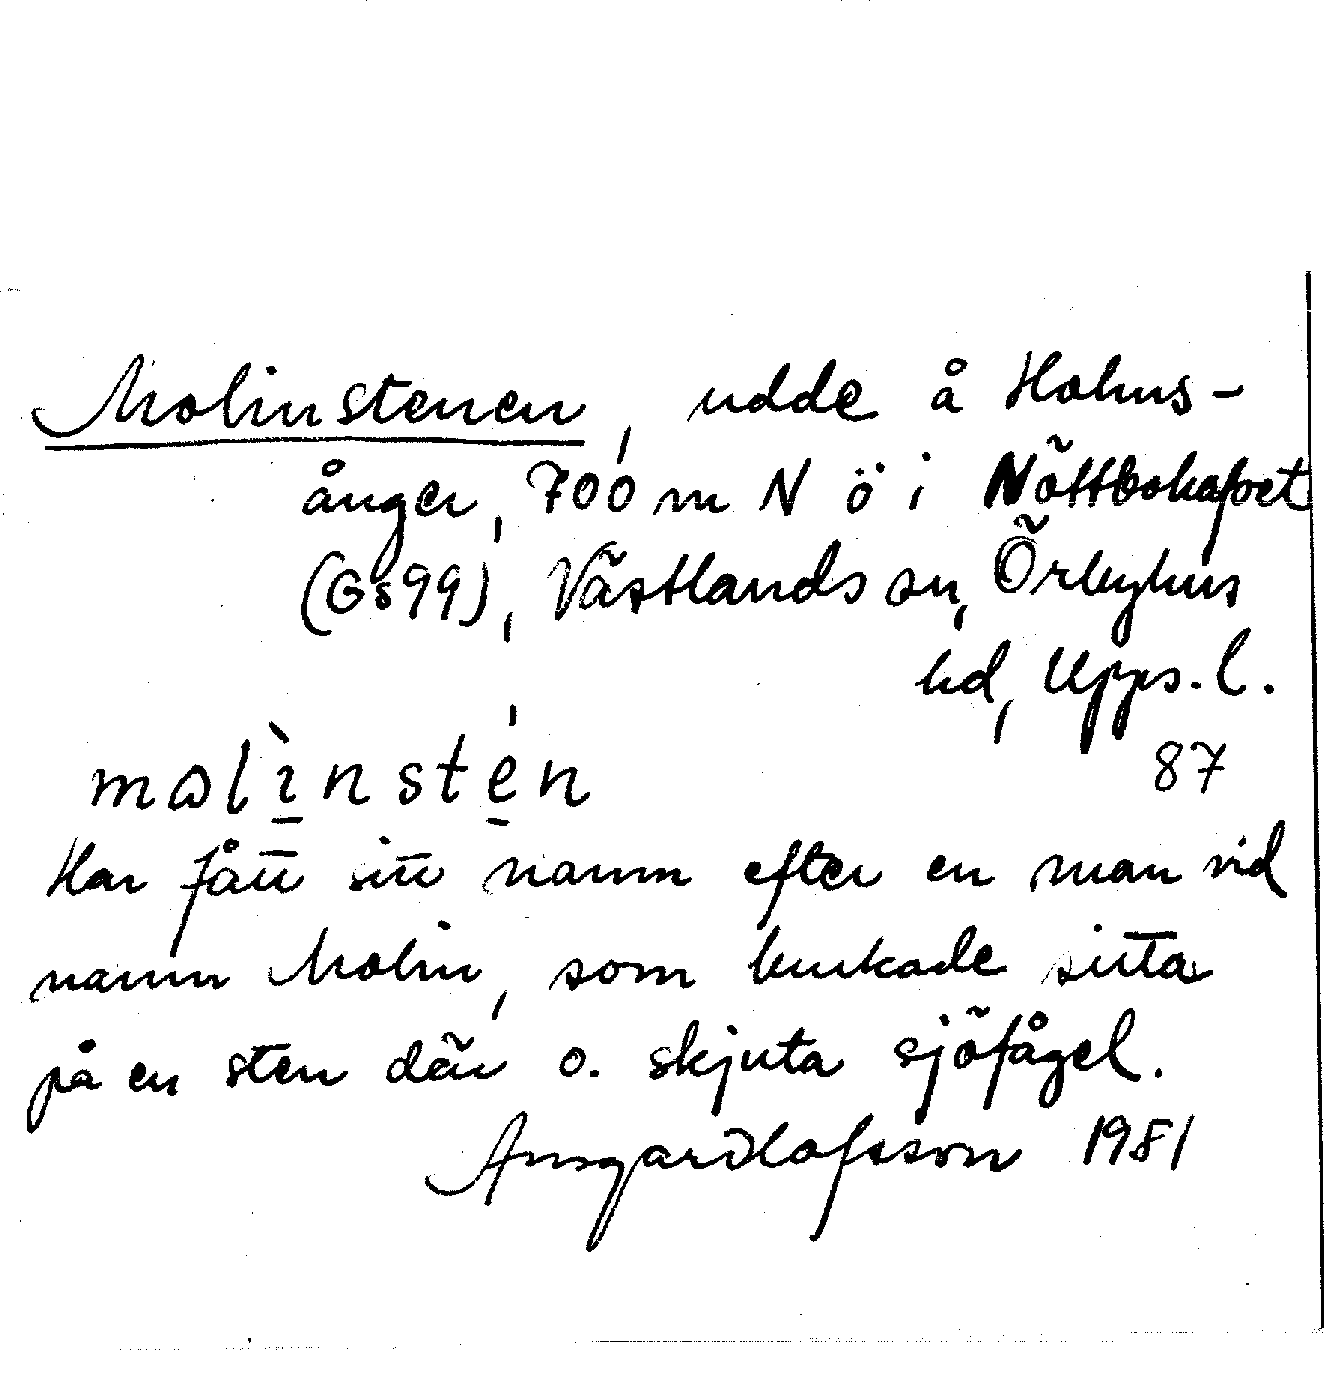 Molinstenen, udde å Hohus-
ånger, 700 m N ö i Nöttbohafvet
(Gs99), Västlands sn, Örbyhus
hd, Upps. l.
87
mωlìnstén
Har fått sitt namn efter en man vid
namn Molin, som brukade sitta
på en sten där o. skjuta sjöfågel.
Ansgar Olofsson 1981